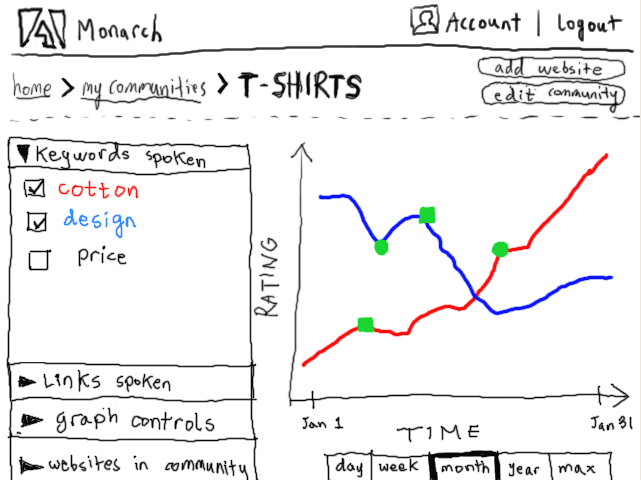 Monarch
Account | Logout
home > my communities > T-SHIRTS
add website
edit community
Keywords spoken
cotton
design
price
Links spoken
graph controls
websites in community
RATING
Jan 1
Jan 31
TIME
day week month year max